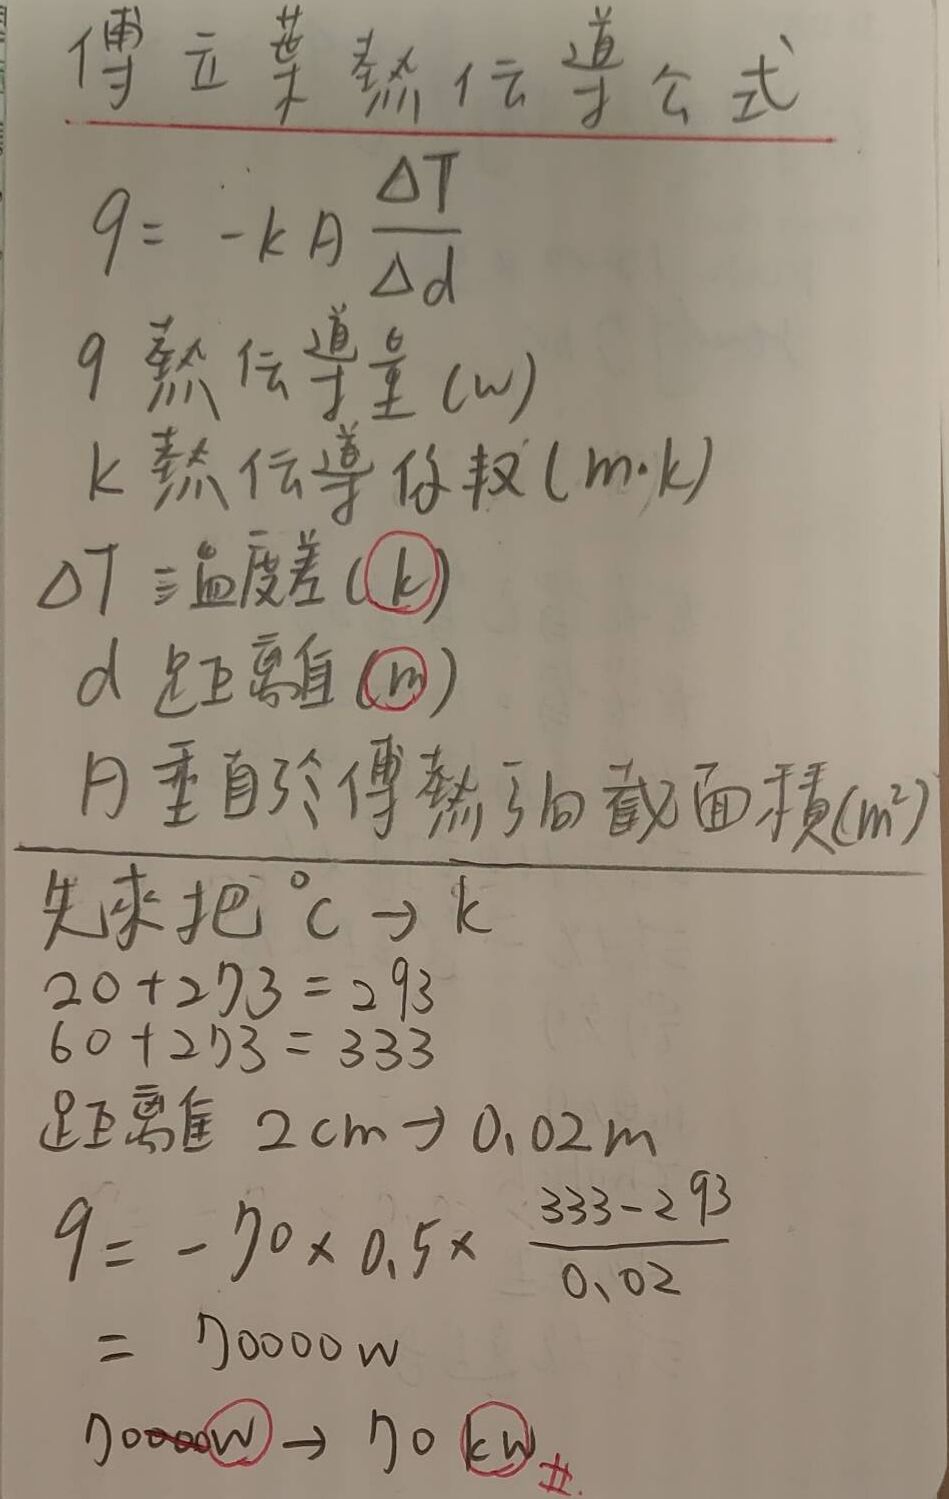 傅立葉熱伝導公式
q = -kA ΔT/Δd
q 熱伝導量(w)
k 熱伝導係数(m·k)
ΔT 温度差(k)
d 距離值(m)
A 垂直於傳熱方向截面積(m²)
先來把 °C → k
20+273=293
60+273=333
距離 2cm→0.02m
q = -70×0.5× 333-293/0.02
= 70000w
70000w → 70 kw #